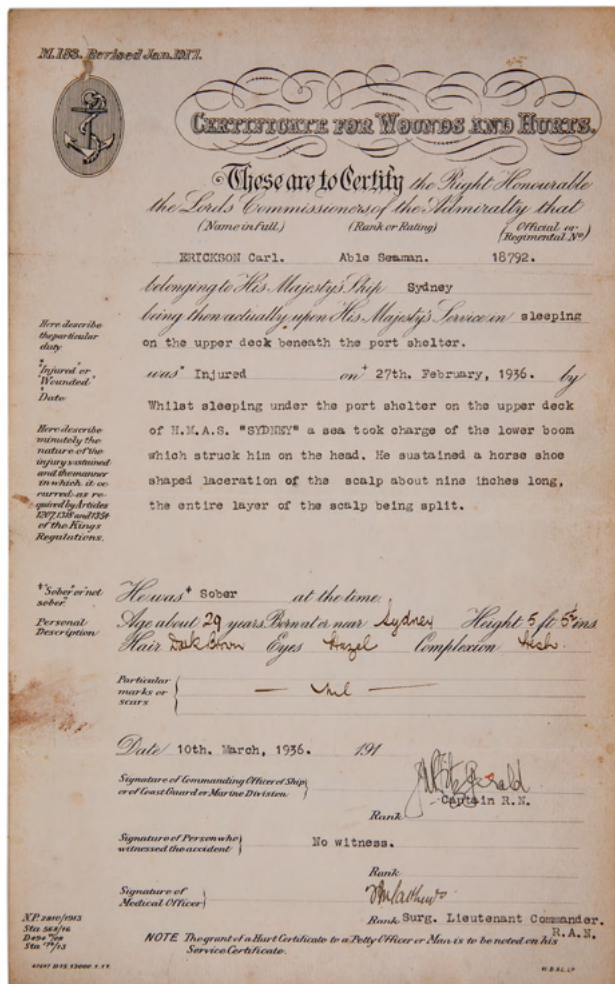 M.183. Revised Jan. 1917.
CERTIFICATE FOR WOUNDS AND HURTS.
These are to Certify the Right Honourable
the Lords Commissioners of the Admiralty that
(Name in full.) (Rank or Rating) (Official or Regimental No)
ERICKSON Carl. Able Seaman. 18792.
belonging to His Majesty's Ship Sydney
being then actually upon His Majesty's Service in sleeping
Here describe
the particular
duty.
on the upper deck beneath the port shelter.
* "Injured" or
"Wounded"
+ Date
was* Injured on+ 27th. February, 1936. by
Here describe
minutely the
nature of the
injury sustained
and the manner
in which it oc-
curred, as re-
quired by Articles
1207, 1318 and 1354
of the Kings
Regulations.
Whilst sleeping under the port shelter on the upper deck
of H.M.A.S. "SYDNEY" a sea took charge of the lower boom
which struck him on the head. He sustained a horse shoe
shaped laceration of the scalp about nine inches long,
the entire layer of the scalp being split.
‡"Sober" or "not
sober."
He was‡ Sober at the time.
Personal
Description
Age about 29 years. Born at or near Sydney Height 5 ft 5½ ins
Hair Dark Brown Eyes Hazel Complexion Fresh.
Particular
marks or
scars
— Nil —
Date 10th. March, 1936. 191
Signature of Commanding Officer of Ship
or of Coast Guard or Marine Division
Fitzgerald
Captain R.N.
Rank
Signature of Person who
witnessed the accident
No witness.
Rank
Signature of
Medical Officer
Rank Surg. Lieutenant Commander.
R.A.N.
N.P. 2810/1913
Sta 568/16
NOTE The grant of a Hurt Certificate to a Petty Officer or Man is to be noted on his
Service Certificate.